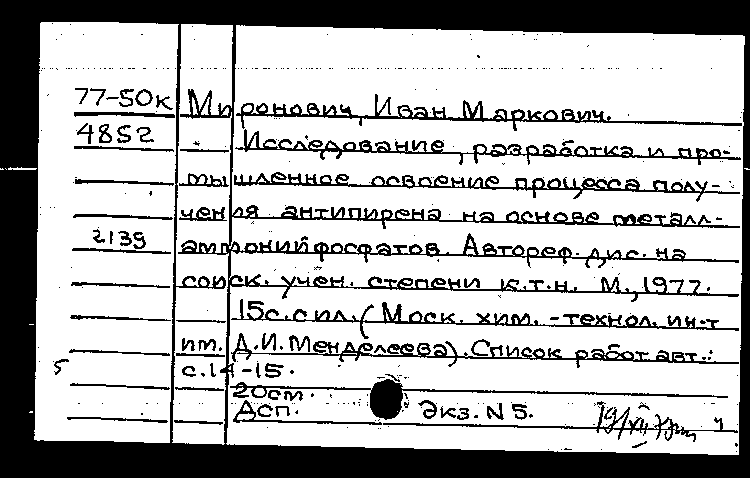 77-50к Миронович, Иван Маркович.
4852 Исследование, разработка и про-
мышленное освоение процесса полу-
чения антипирена на основе металл-
2139 аммонийфосфатов. Автореф. дис. на
соиск. учен. степени к.т.н. М., 1977.
15с. с ил. (Моск. хим.-технол. ин-т
им. Д.И. Менделеева). Список работ авт.:
5 с.14-15.
20см.
Дсп. Экз. N 5.